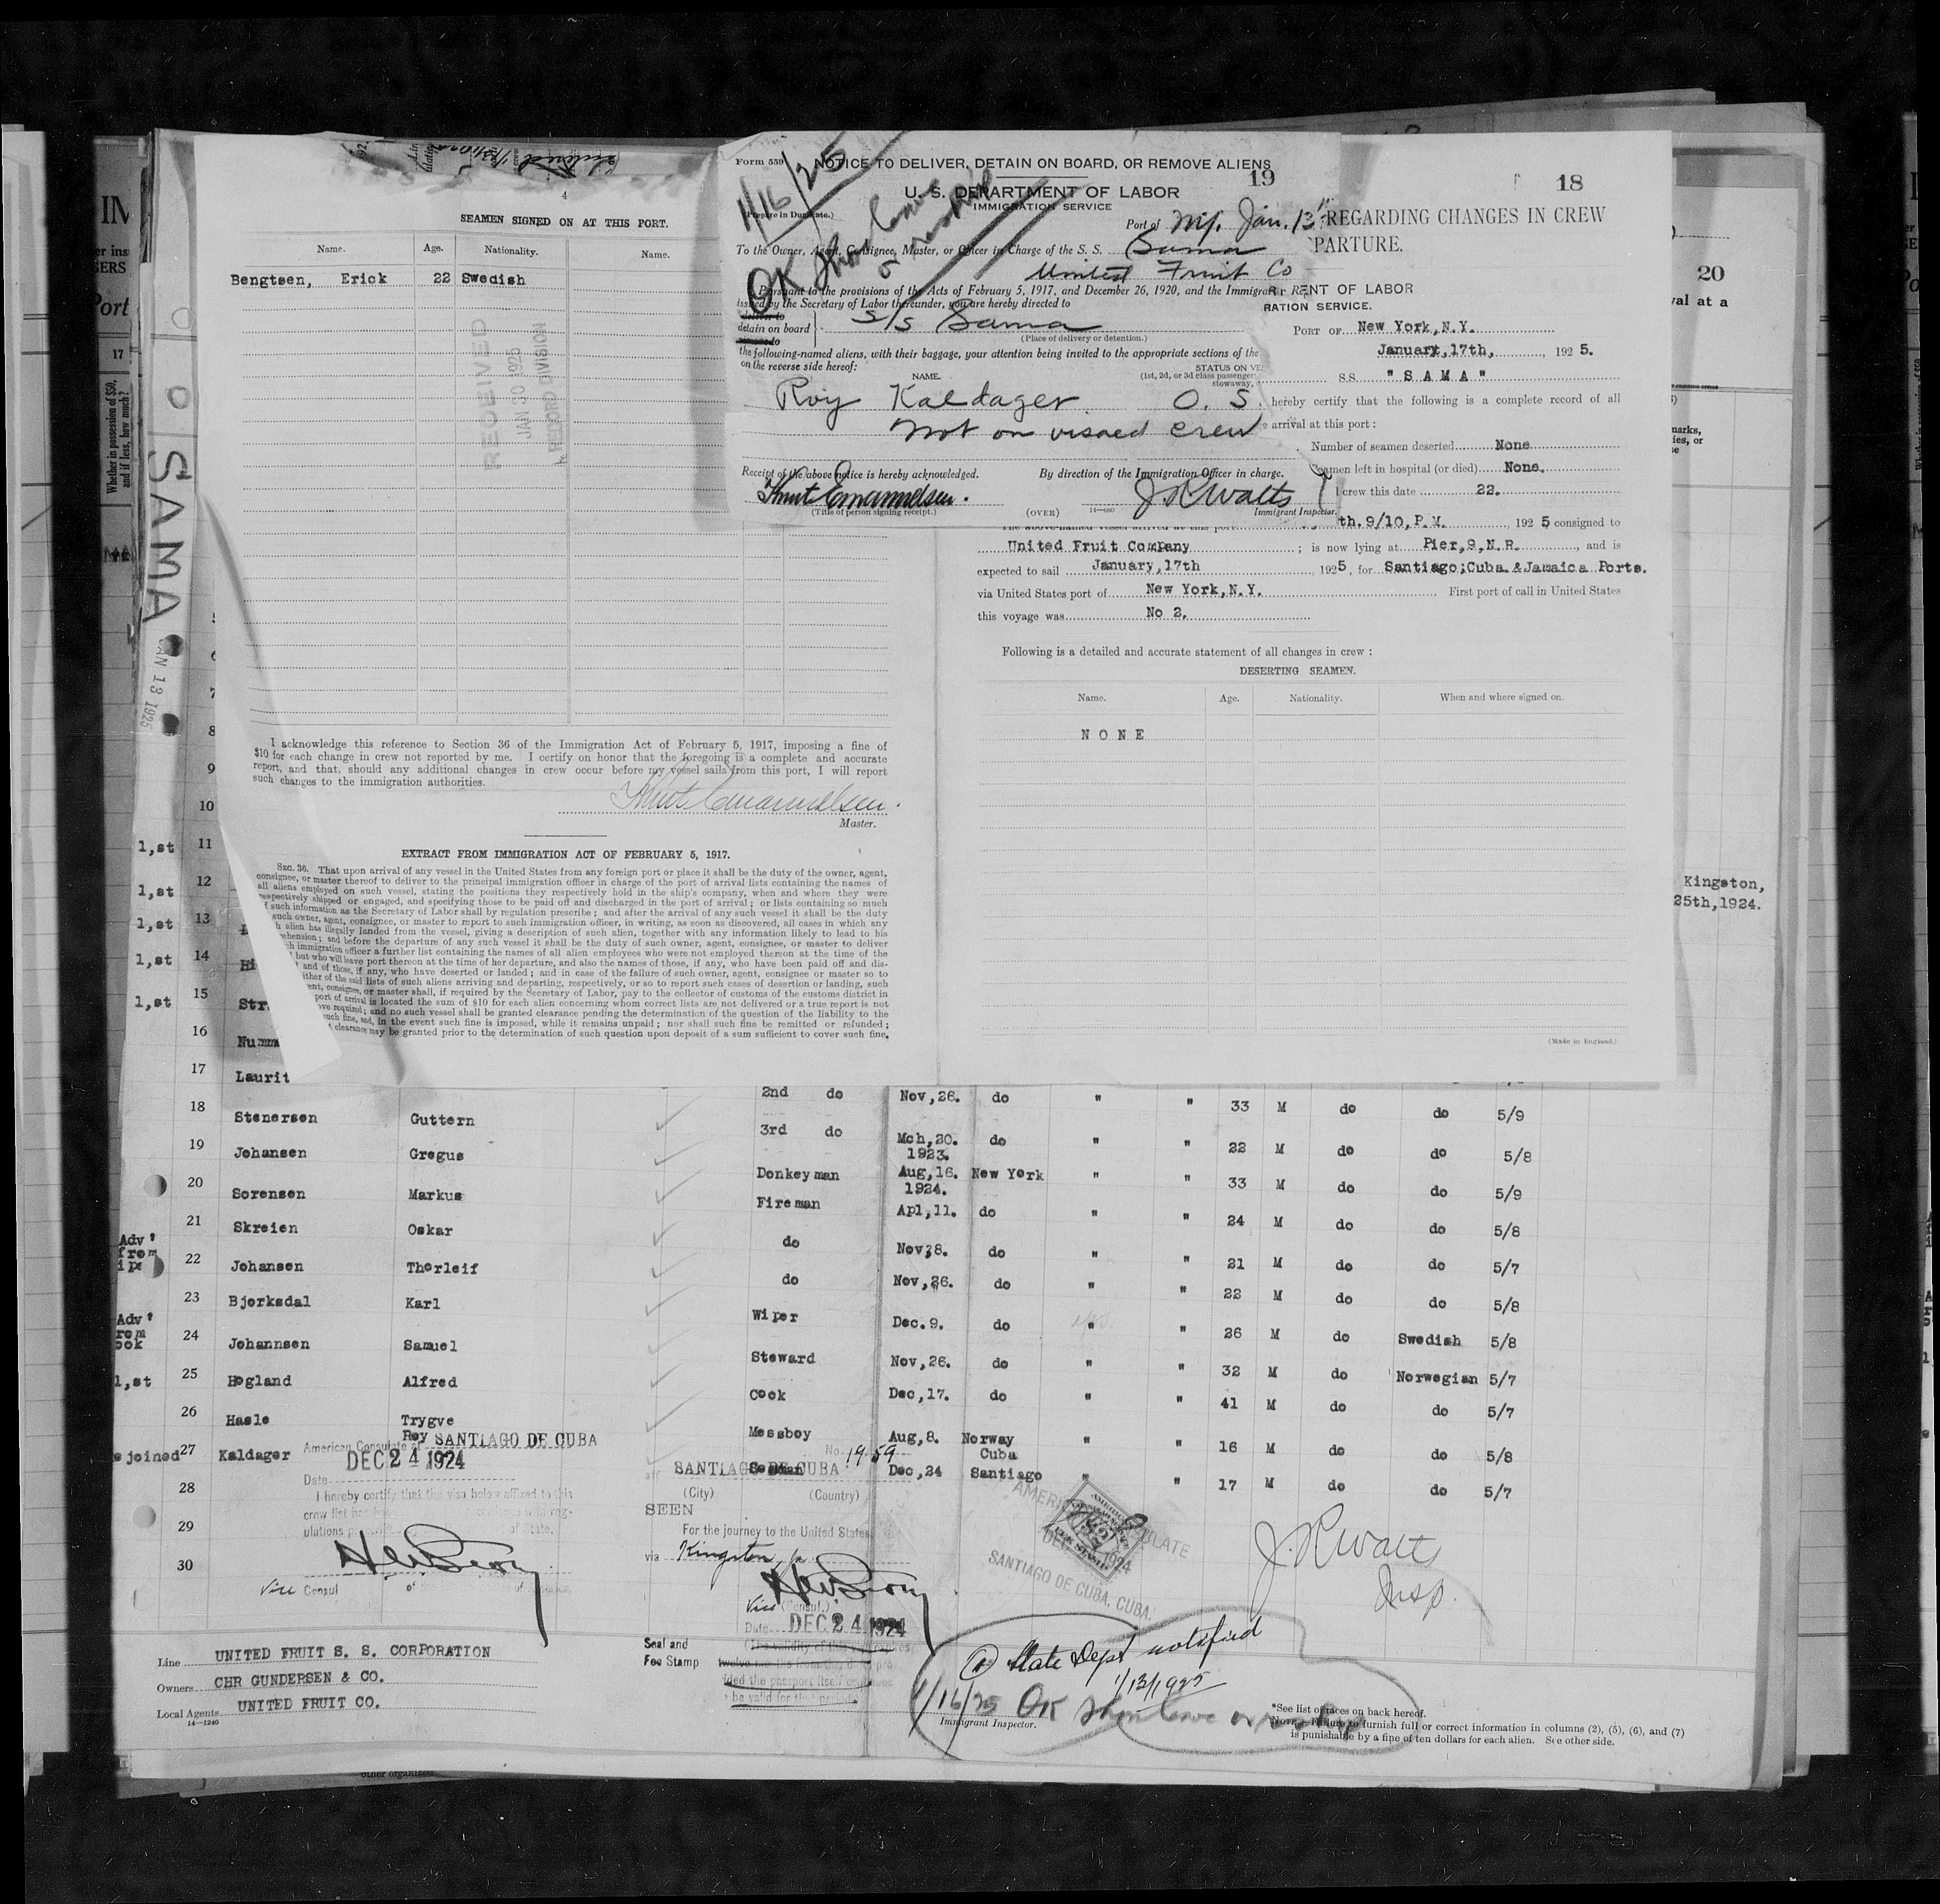 4
SEAMEN SIGNED ON AT THIS PORT.
Name. Age. Nationality. Name.
Bengtsen, Erick 22 Swedish
RECEIVED
JAN 30 1925
RECORD DIVISION
I acknowledge this reference to Section 36 of the Immigration Act of February 5, 1917, imposing a fine of
$10 for each change in crew not reported by me. I certify on honor that the foregoing is a complete and accurate
report, and that, should any additional changes in crew occur before my vessel sails from this port, I will report
such changes to the immigration authorities.
Knut Emanuelsen.
Master.
EXTRACT FROM IMMIGRATION ACT OF FEBRUARY 5, 1917.
SEC. 36. That upon arrival of any vessel in the United States from any foreign port or place it shall be the duty of the owner, agent,
consignee, or master thereof to deliver to the principal immigration officer in charge of the port of arrival lists containing the names of
all aliens employed on such vessel, stating the positions they respectively hold in the ship's company, when and where they were
respectively shipped or engaged, and specifying those to be paid off and discharged in the port of arrival; or lists containing so much
of such information as the Secretary of Labor shall by regulation prescribe; and after the arrival of any such vessel it shall be the duty
such owner, agent, consignee, or master to report to such immigration officer, in writing, as soon as discovered, all cases in which any
alien has illegally landed from the vessel, giving a description of such alien, together with any information likely to lead to his
hension; and before the departure of any such vessel it shall be the duty of such owner, agent, consignee, or master to deliver
immigration officer a further list containing the names of all alien employees who were not employed thereon at the time of the
but who will leave port thereon at the time of her departure, and also the names of those, if any, who have been paid off and dis-
and of those, if any, who have deserted or landed; and in case of the failure of such owner, agent, consignee or master so to
ither of the said lists of such aliens arriving and departing, respectively, or so to report such cases of desertion or landing, such
ent, consignee, or master shall, if required by the Secretary of Labor, pay to the collector of customs of the customs district in
port of arrival is located the sum of $10 for each alien concerning whom correct lists are not delivered or a true report is not
ve required; and no such vessel shall be granted clearance pending the determination of the question of the liability to the
uch fine, and, in the event such fine is imposed, while it remains unpaid; nor shall such fine be remitted or refunded;
clearance may be granted prior to the determination of such question upon deposit of a sum sufficient to cover such fine.
Form 559
NOTICE TO DELIVER, DETAIN ON BOARD, OR REMOVE ALIENS
19
U. S. DEPARTMENT OF LABOR
IMMIGRATION SERVICE
(Prepare in Duplicate.)
1/16/25
OK Shore leave
or reship
Port of NY. Jan. 13
To the Owner, Agent, Consignee, Master, or Officer in Charge of the S. S. Sama
United Fruit Co
Pursuant to the provisions of the Acts of February 5, 1917, and December 26, 1920, and the Immigrat
issued by the Secretary of Labor thereunder, you are hereby directed to
deliver to
detain on board
remove to
S/S Sama
(Place of delivery or detention.)
the following-named aliens, with their baggage, your attention being invited to the appropriate sections of the
on the reverse side hereof:
NAME. STATUS ON VE
(1st, 2d, or 3d class passenger
stowaway,
Roy Kaldager. O. S.
Not on visaed crew
Receipt of the above notice is hereby acknowledged. By direction of the Immigration Officer in charge.
Knut Emanuelsen. J R Watts
(Title of person signing receipt.) (OVER) Immigrant Inspector.
18
REGARDING CHANGES IN CREW
PARTURE.
RENT OF LABOR
RATION SERVICE.
PORT OF New York, N.Y.
January, 17th, 1925.
S.S. "SAMA"
hereby certify that the following is a complete record of all
e arrival at this port:
Number of seamen deserted None
Seamen left in hospital (or died) None.
crew this date 22.
th. 9/10, P.M. 1925 consigned to
United Fruit Company ; is now lying at Pier, 9, N.R. , and is
expected to sail January, 17th 1925, for Santiago; Cuba & Jamaica Ports.
via United States port of New York, N.Y. First port of call in United States
this voyage was No 2.
Following is a detailed and accurate statement of all changes in crew:
DESERTING SEAMEN.
Name. Age. Nationality. When and where signed on.
NONE
(Made in England.)
20
val at a
Kingston,
25th, 1924.
SAMA
JAN 13 1925
8
9
10
1,st 11
1,st 12
1,st 13
1,st 14
1,st 15 Str
16 Numm
17 Laurit
18 Stenersen Guttern 2nd do Nov, 26. do " " 33 M do do 5/9
19 Johansen Gregus 3rd do Mch, 20. 1923. do " " 22 M do do 5/8
20 Sorensen Markus Donkeyman Aug, 16. 1924. New York " " 33 M do do 5/9
21 Skreien Oskar Fireman Apl, 11. do " " 24 M do do 5/8
22 Johansen Thorleif do Nov, 8. do " " 21 M do do 5/7
23 Bjorksdal Karl do Nov, 26. do " " 22 M do do 5/8
24 Johannsen Samuel Wiper Dec. 9. do " " 26 M do Swedish 5/8
1,st 25 Hogland Alfred Steward Nov, 26. do " " 32 M do Norwegian 5/7
26 Hasle Trygve Cook Dec, 17. do " " 41 M do do 5/7
Messboy Aug, 8. Norway " " 16 M do do 5/8
e joined 27 Kaldager Roy Seaman Dec, 24 Cuba Santiago " " 17 M do do 5/7
28
29
30
American Consulate at SANTIAGO DE CUBA
DEC 24 1924
Date
I hereby certify that the visa below affixed to this
of State.
Vice Consul
No. 1959
SANTIAGO DE CUBA
(City) (Country)
SEEN
For the journey to the United States
via Kingston, Ja
Vice (Consul.)
Date DEC 24 1924
(The validity of this visa expires
ded the passport itself
be valid for that period.
Seal and
Fee Stamp
SANTIAGO DE CUBA, CUBA.
J. R Watts
Insp.
State Dept notified
1/13/1925
1/16/25 OK Shore leave or reship
Immigrant Inspector.
Line UNITED FRUIT S. S. CORPORATION
Owners CHR GUNDERSEN & CO.
Local Agents UNITED FRUIT CO.
14—1240
*See list of races on back hereof.
NOTE.—Failure to furnish full or correct information in columns (2), (5), (6), and (7)
is punishable by a fine of ten dollars for each alien. See other side.